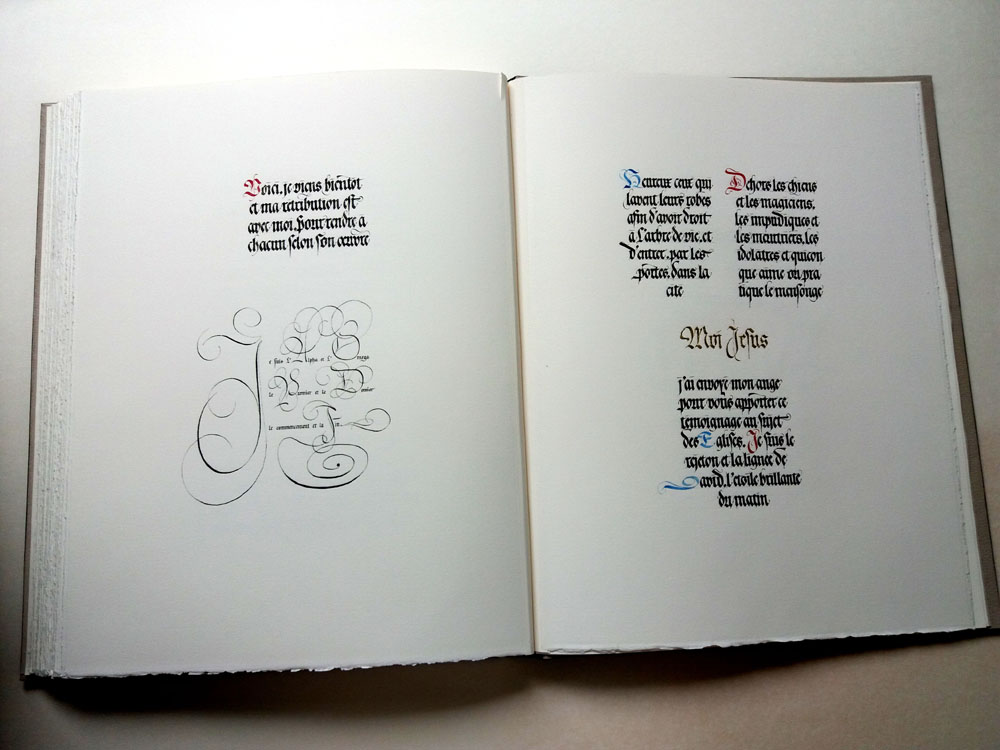 Voici, je viens bientot
et ma retribution est
avec moi. Pour rendre a
chacun selon son œuvre
Je suis L'Alpha et L'Omega
le Premier et le Dernier
le commencement et la Fin
Heureux ceux qui
lavent leurs robes
afin d'avoir droit
à L'arbre de vie, et
d'entrer, par les
portes, dans la
cite
Dehors les chiens
et les magiciens,
les impudiques et
les meurtriers, les
idolatres et quicon
que aime ou pra
tique le mensonge
Moi Jesus
j'ai envoyé mon ange
pour vous apporter ce
temoignage au sujet
des Eglises. Je suis le
rejeton et la lignée de
David, l'etoile brillante
du matin